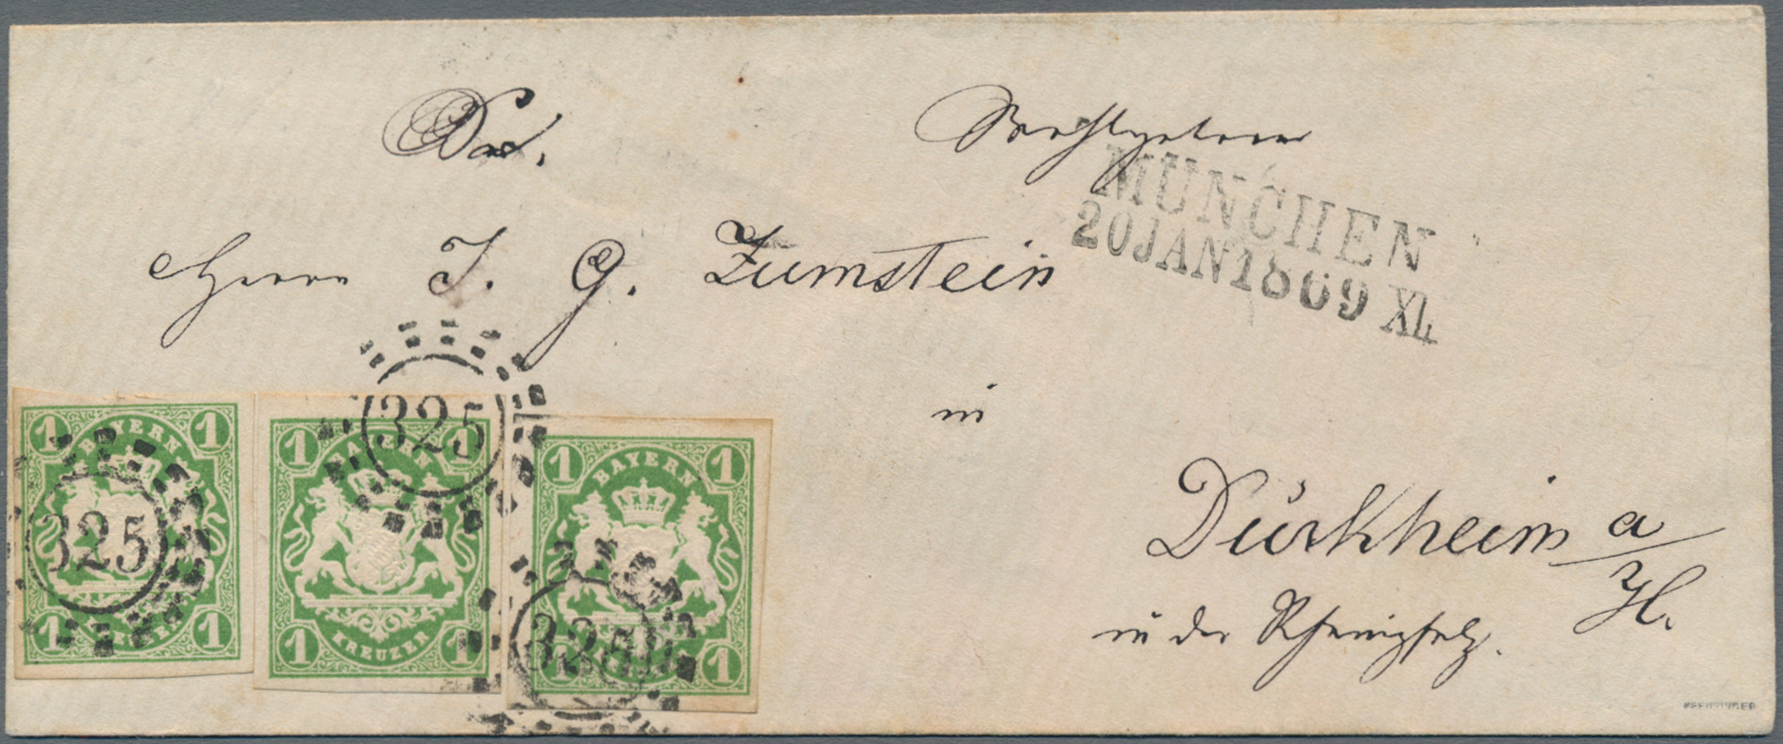 MÜNCHEN
20 JAN 1869 XI.
Herrn J. G. Zumstein
in
Dürkheim a/H.
in der Rheinpfalz.
325
325
325
1 1
BAYERN
KREUZER
1 1
1 1
BAYERN
KREUZER
1 1
1 1
BAYERN
KREUZER
1
PFENNINGER